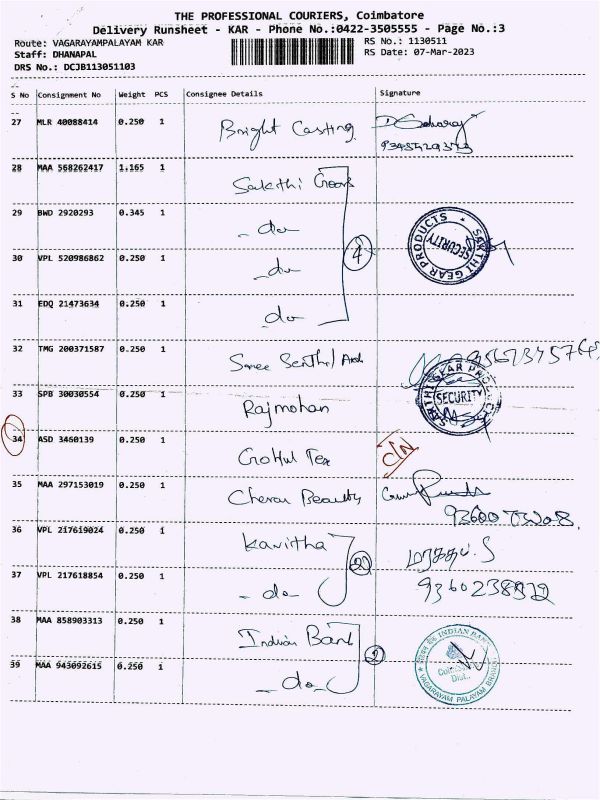 THE PROFESSIONAL COURIERS, Coimbatore
Delivery Runsheet - KAR - Phone No.:0422-3505555 - Page No.:3
Route: VAGARAYAMPALAYAM KAR
RS No.: 1130511
Staff: DHANAPAL
RS Date: 07-Mar-2023
DRS No.: DCJB113051103
S No Consignment No Weight PCS Consignee Details Signature
27 MLR 40088414 0.250 1 Bright Casting
28 MAA 568262417 1.165 1 Sakthi Gears
29 BWD 2920293 0.345 1 - do -
SAKTHI GEAR PRODUCTS * SECURITY
4
30 VPL 520986862 0.250 1 - do
31 EDQ 21473634 0.250 1 do -
32 TMG 200371587 0.250 1
33 SPB 30030554 0.250 1 Rajmohan
SAKTHI GEAR PRODUCTS SECURITY
34 ASD 3460139 0.250 1 Gokul Tex C/N
35 MAA 297153019 0.250 1 Cheran Beauty
36 VPL 217619024 0.250 1 Kavitha
2
37 VPL 217618854 0.250 1 - do - 9360238912
38 MAA 858903313 0.250 1 Indian Bank
2
39 MAA 943092615 0.250 1 - do -
INDIAN BANK
VAGARAYAM PALAYAM BRANCH